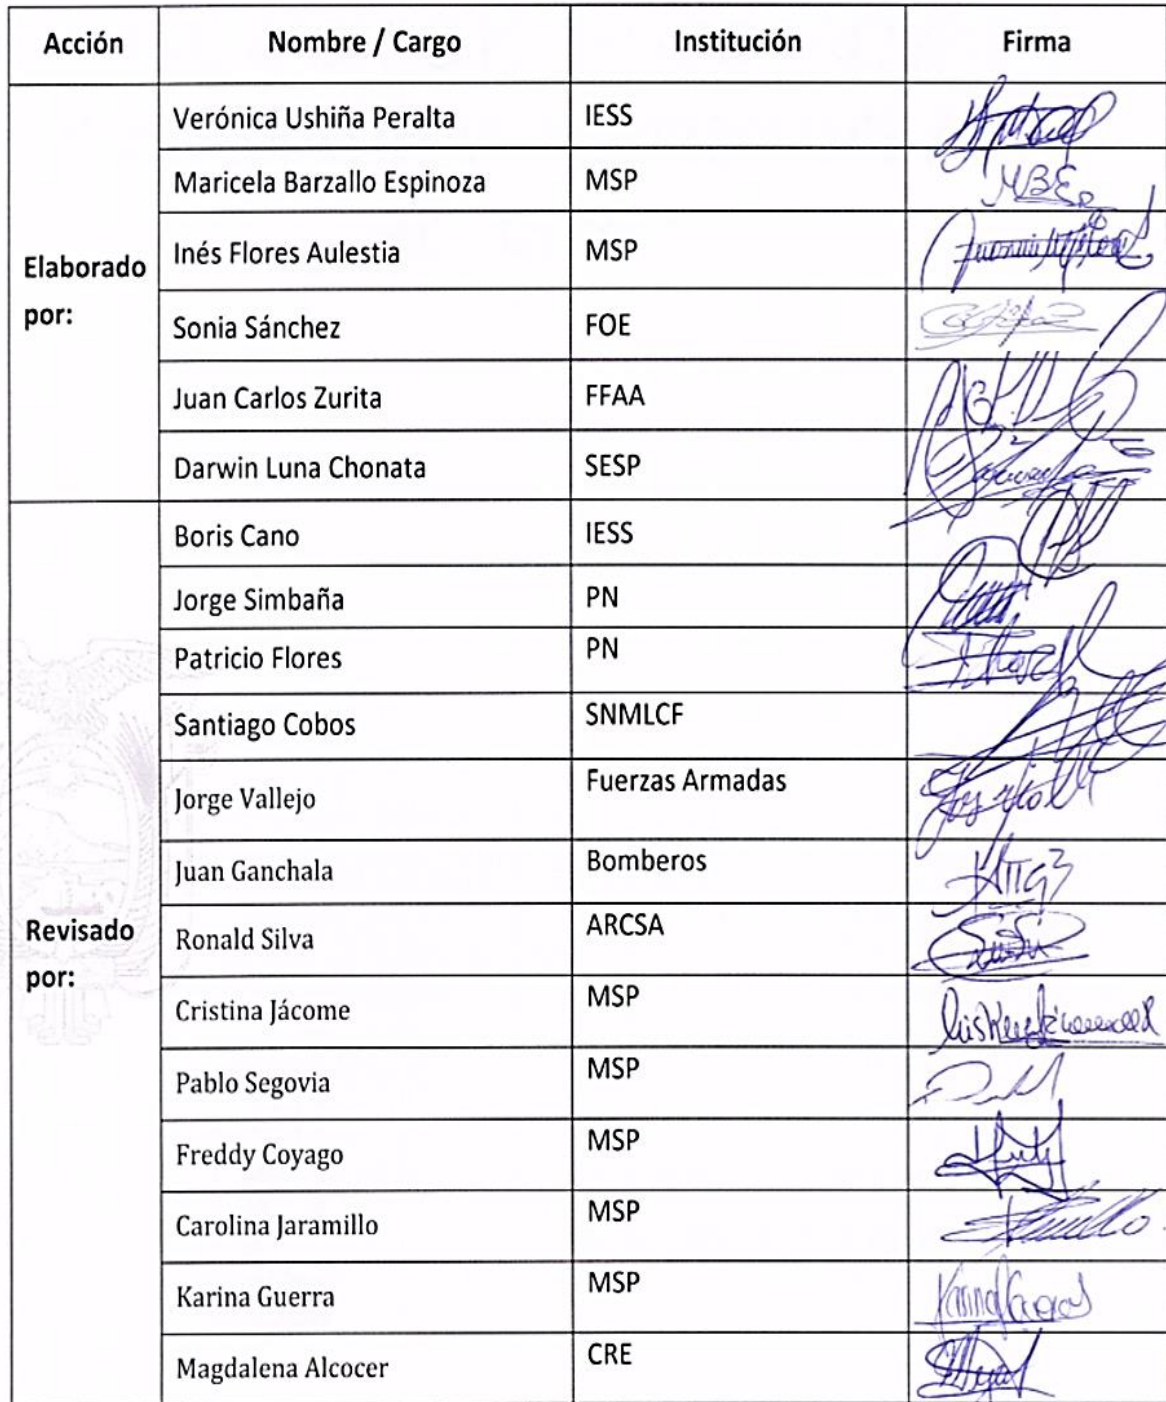 Acción Nombre / Cargo Institución Firma
Verónica Ushiña Peralta IESS
Maricela Barzallo Espinoza MSP MBE
Inés Flores Aulestia MSP
Elaborado por:
Sonia Sánchez FOE
Juan Carlos Zurita FFAA
Darwin Luna Chonata SESP
Boris Cano IESS
Jorge Simbaña PN
Patricio Flores PN
Santiago Cobos SNMLCF
Jorge Vallejo Fuerzas Armadas
Juan Ganchala Bomberos
Revisado por:
Ronald Silva ARCSA
Cristina Jácome MSP
Pablo Segovia MSP
Freddy Coyago MSP
Carolina Jaramillo MSP
Karina Guerra MSP
Magdalena Alcocer CRE